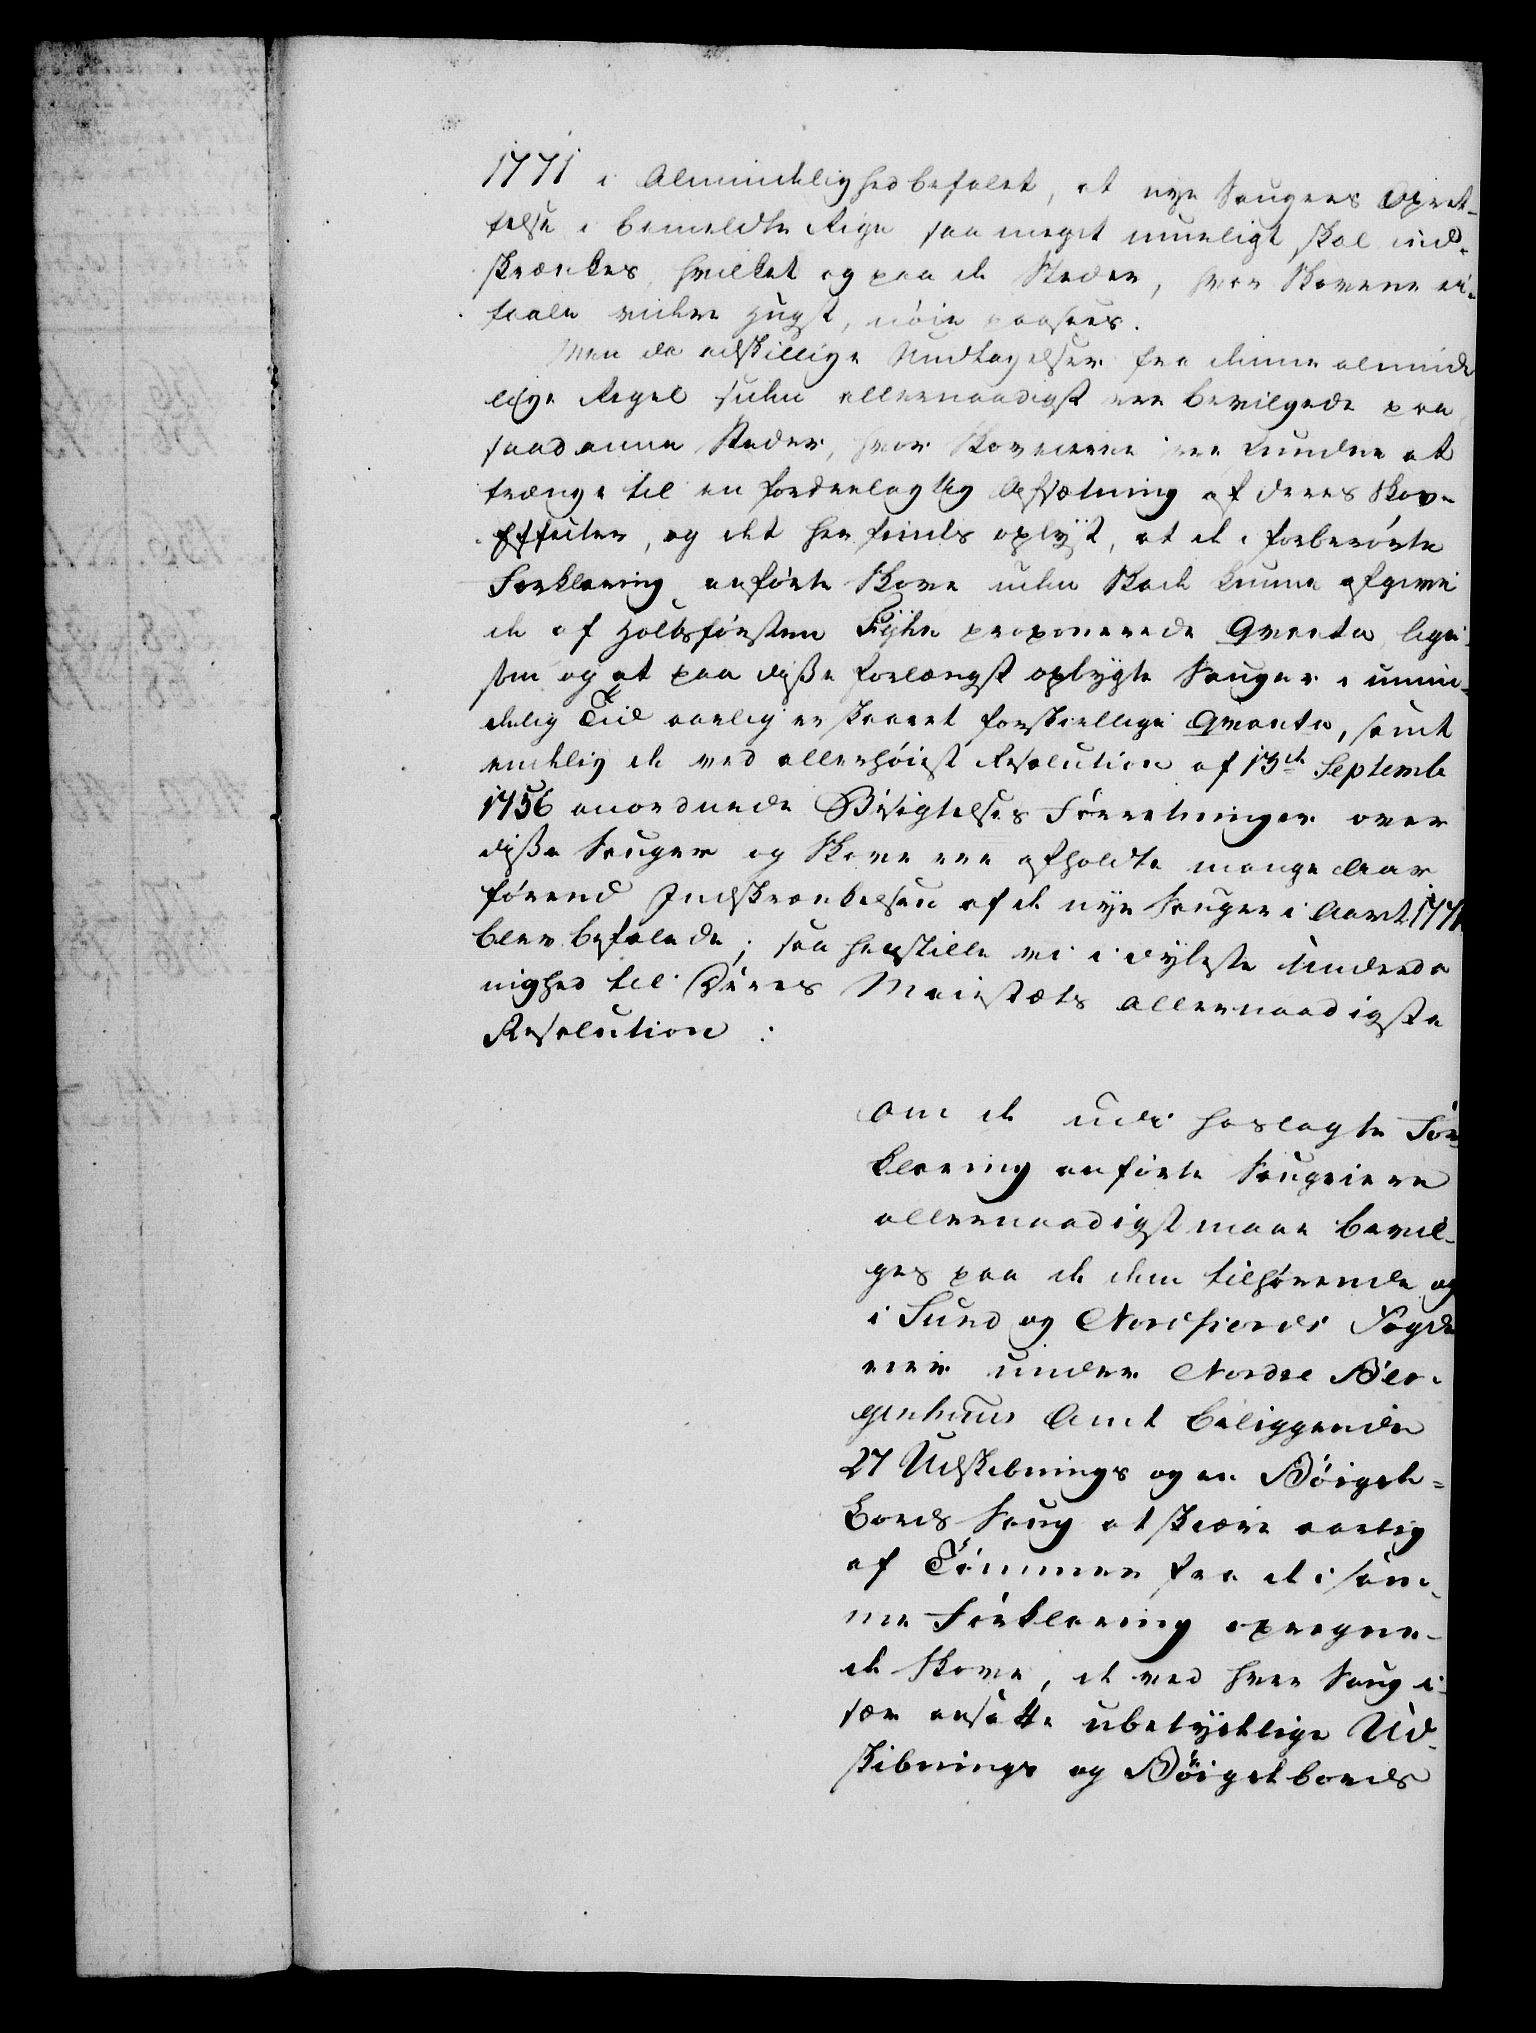 1771 i Almindelighed befalet, at nye Saugers Opret-
telse i bemeldte Rige saa meget mueligt skal ind-
skrænkes, hvilket og paa de Steder, hvor Skovene ei
taale videre Hugst, nöie paasees.
Men da adskillige Undtagelser fra denne alminde
lige Regel siden allernaadigst ere bevilgede paa
saadanne Steder, hvor Skoveierne ere fundne at
trænge til en fordeelagtig Afsætning af deres Skov-
Effecter, og det her findes oplyst, at de i forberörte
Forklaring anförte Skove uden Skade kunne afgive
de af Holtsförsten Fÿhn proponerede Qvanta, lige-
som og at paa disse forlængst opbygte Sauger i umin-
delig Tiid aarlig er skaaret forskiellige Qvanta, samt
endelig de ved allerhöiest Resolution af 13de Septembr
1756 anordnede Besigtelses Forretninger over
disse Sauger og Skove ere afholdte mange Aar
förend Indskrænkelsen af de nye Sauger i Aaret 1771
blev befalede; saa henstille vi i dybeste Underda
nighed til Deres Maiestæts allernaadigste
Resolution:
om de udi hoslagte For
klaring anförte Saugeiere
allernaadigst maae bevil-
ges paa de dem tilhörende og
i Sund og Nordfiords Fogde
rier under Nordre Ber-
genhuus Amt beliggende
27 Udskibnings og en Böigde-
bords Saug at skiære aarlig
af Tömmer fra de i sam-
me Forklaring opregne-
de Skove, de ved hver Saug i-
sær ansatte ubetydelige Ud-
skibnings og Böigdebords